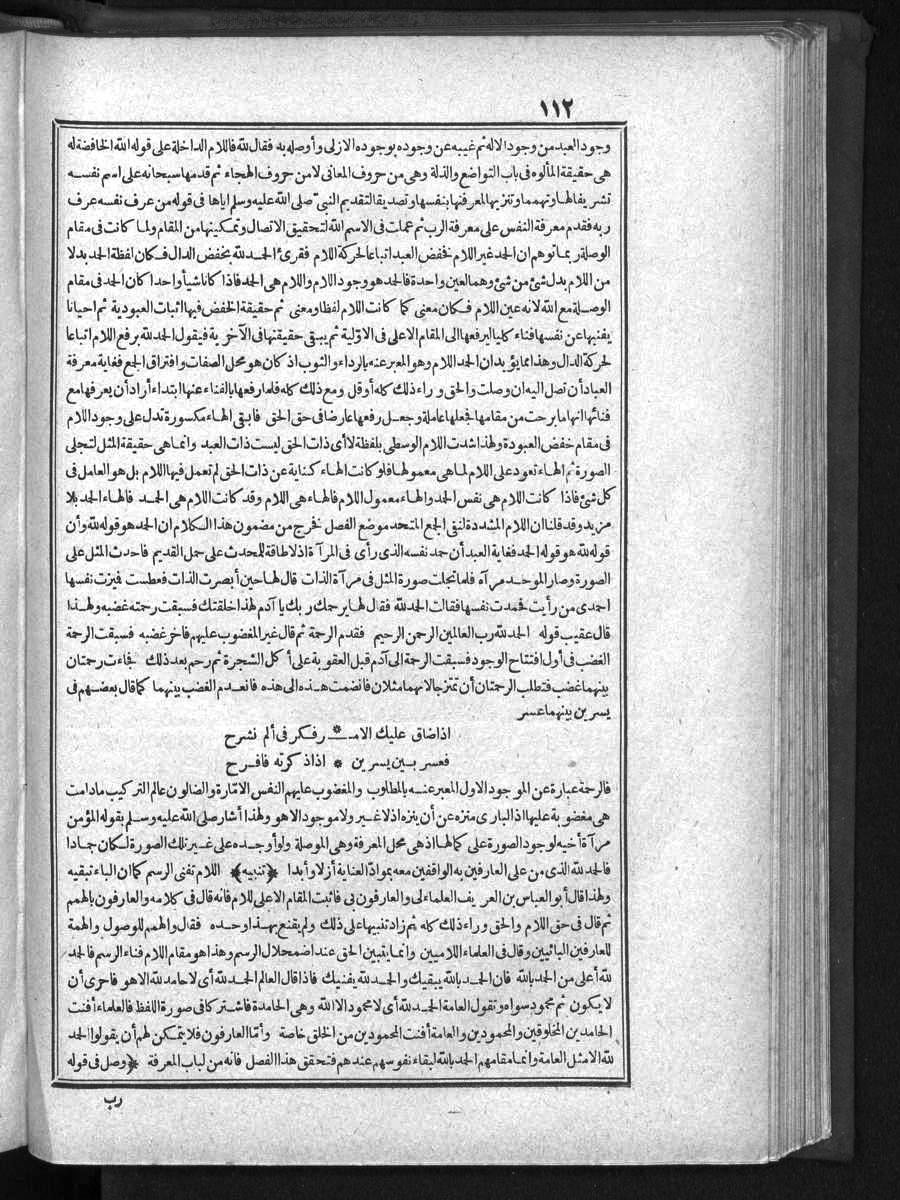 ١١٢
وجود العبد من وجود الاله ثم غيبه عن وجوده بوجوده الازلى وأوصله به فقال لله فاللام الداخلة على قوله الله الخافضة له
هى حقيقة المألوه فى باب التواضع والذلة وهى من حروف المعانى لامن حروف الهجاء ثم قدمها سبحانه على اسم نفسه
تشريفا لها وتهمما وتنزيها لمعرفتها بنفسها وتصديقا لتقديم النبى صلى الله عليه وسلم اياها فى قوله من عرف نفسه عرف
ربه فقدم معرفة النفس على معرفة الرب ثم عملت فى الاسم الله لتحقيق الاتصال وتمكينها من المقام ولما كانت فى مقام
الوصلة ربما توهم ان الحمد غير اللام نخفض العبد اتباعا لحركة اللام فقرئ الحمد لله بخفض الدال فكان لفظة الحمد بدلا
من اللام بدل شئ من شئ وهما لعين واحدة فالحمد هو وجود اللام واللام هى الحمد فاذا كانا شيأ واحدا كان الحمد فى مقام
الوصلة مع الله لانه عين اللام فكان معنى كما كانت اللام لفظا ومعنى ثم حقيقة الخفض فيها اثبات العبودية ثم احيانا
يفنيها عن نفسها فناء كليا ليرفعها الى المقام الاعلى فى الاولية ثم يبقى حقيقتها فى الآخرية فيقول الحمد لله برفع اللام اتباعا
لحركة الدال وهذا مما يؤيد بان الحمد اللام وهو المعبر عنه بالرداء والثوب اذ كان هو محل الصفات وافتراق الجمع فغاية معرفة
العباد أن تصل اليه ان وصلت والحق وراء ذلك كله أو قل ومع ذلك كله فلما رفعها بالفناء عنها ابتداء أراد أن يعرفها مع
فنائها انها ما برحت من مقامها فجعلها عاملة وجعل رفعها عارضا فى حق الحق فابقى الهاء مكسورة تدل على وجود اللام
فى مقام خفض العبودة ولهذا شدت اللام الوسطى بلفظة لا أى ذات الحق ليست ذات العبد وانما هى حقيقة المثل لتجلى
الصورة ثم الهاء تعود على اللام لما هى معمولها فلو كانت الهاء كناية عن ذات الحق لم تعمل فيها اللام بل هو العامل فى
كل شئ فاذا كانت اللام هى نفس الحمد والهاء معمول اللام فالهاء هى اللام وقد كانت اللام هى الحمد فالهاء الحمد بلا
مزيد وقد قلنا ان اللام المشددة لنفى الجمع المتحد موضع الفصل نخرج من مضمون هذا الكلام ان الحمد هو قوله لله وأن
قوله لله هو قوله الحمد فغاية العبد أن حمد نفسه الذى رأى فى المرآة اذ لا طاقة للمحدث على حمل القديم فاحدث المثل على
الصورة وصار الموحد مرآه فلما تجلت صورة المثل فى مرآة الذات قال لها حين أبصرت الذات فعطست فميزت نفسها
احمدى من رأيت فحمدت نفسها فقالت الحمد لله فقال لها يرحمك ربك يا آدم لهذا خلقتك فسبقت رحمته غضبه ولهذا
قال عقيب قوله الحمد لله رب العالمين الرحمن الرحيم فقدم الرحمة ثم قال غير المغضوب عليهم فاخر غضبه فسبقت الرحمة
الغضب فى أول افتتاح الوجود فسبقت الرحمة الى آدم قبل العقوبة على أكل الشجرة ثم رحم بعد ذلك فجاءت رحمتان
بينهما غضب فتطلب الرحمتان أن تمتزجا لانهما مثلان فانضمت هذه الى هذه فانعدم الغضب بينهما كما قال بعضهم فى
يسرين بينهما عسر
اذا ضاق عليك الامـ * ر فكر فى ألم نشرح
فعسر بين يسرين * اذا ذكرته فافرح
فالرحمة عبارة عن الموجود الاول المعبر عنه بالمطلوب والمغضوب عليهم النفس الامّارة والضالون عالم التركيب مادامت
هى مغضوبة عليها اذ البارى منزه عن أن ينزه اذ لا غير ولا موجود الا هو ولهذا أشار صلى الله عليه وسلم بقوله المؤمن
مرآة أخيه لوجود الصورة على كمالها اذ هى محل المعرفة وهى الموصلة ولو أوجده على غير تلك الصورة لكان جمادا
فالحمد لله الذى من على العارفين به الواقفين معه بموادّ العناية أزلا وأبدا ﴿تنبيه﴾ اللام تفنى الرسم كما ان الباء تبقيه
ولهذا قال أبو العباس بن العريف العلماء لى والعارفون بى فاثبت المقام الاعلى للام فانه قال فى كلامه والعارفون بالهمم
ثم قال فى حق اللام والحق وراء ذلك كله ثم زاد تنبيها على ذلك ولم يقنع بهذا وحده فقال والهمم للوصول والهمة
للعارفين البائيين وقال فى العلماء اللاميين وانما يتبين الحق عند اضمحلال الرسم وهذا هو مقام اللام فناء الرسم فالحمد
لله أعلى من الحمد بالله فان الحمد بالله يبقيك والحمد لله يفنيك فاذا قال العالم الحمد لله أى لا حامد لله الا هو فاحرى أن
لا يكون ثم محمود سواه وتقول العامة الحمد لله أى لا محمود الا الله وهى الحامدة فاشتركا فى صورة اللفظ فالعلماء أفنت
الحامدين المخلوقين والمحمودين والعامة أفنت المحمودين من الخلق خاصة وأمّا العارفون فلا يتمكن لهم أن يقولوا الحمد
لله الا مثل العامة وانما مقامهم الحمد بالله لبقاء نفوسهم عندهم فتحقق هذا الفصل فانه من لباب المعرفة ﴿وصل فى قوله
رب